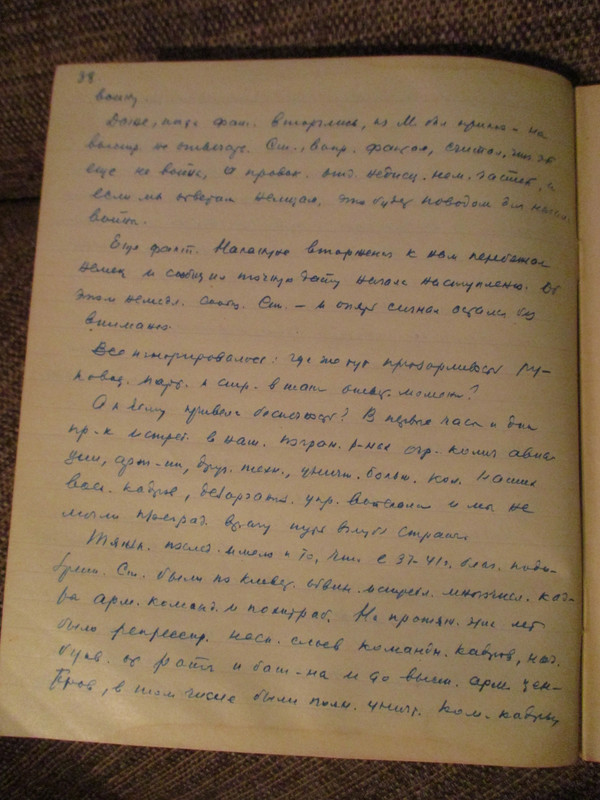 38.
войну.
Даже, когда фаш. вторглись, из М. был приказ - на
выстр. не отвечать. Ст., вопр. фактам, считал, что это
еще не война, а провок. отд. недисц. нем. частей, и
если мы ответим немцам, это будет поводом для начала
войны.
Еще факт. Накануне вторжения к нам перебежал
немец и сообщил точную дату начала наступления. Об
этом немедл. сообщ. Ст. - и опять сигнал остался без
внимания.
Все игнорировалось: где же тут прозорливость ру-
ковод. парт. и стр. в такой ответ. момент?
А к чему привела беспечность? В первые часы и дни
пр-к истреб. в наш. погран. р-нах огр. колич авиа-
ции, арт-ии, друг. техн., уничт. больш. кол. наших
воен. кадров, дезорганиз. упр. войсками и мы не
могли преград. врагу путь вглубь страны.
Тяжк. послед. имело и то, что с 37-41г. благ. подо-
зрит. Ст. были по клевет. обвин. истребл. многочисл. кад-
ра арм. команд. и политраб. На протяж. этих лет
было репрессир. неск. слоев командн. кадров, нач.
букв. от роты и бат-на и до высш. арм. цен-
тров, в том числе были полн. уничт. ком. кадры,